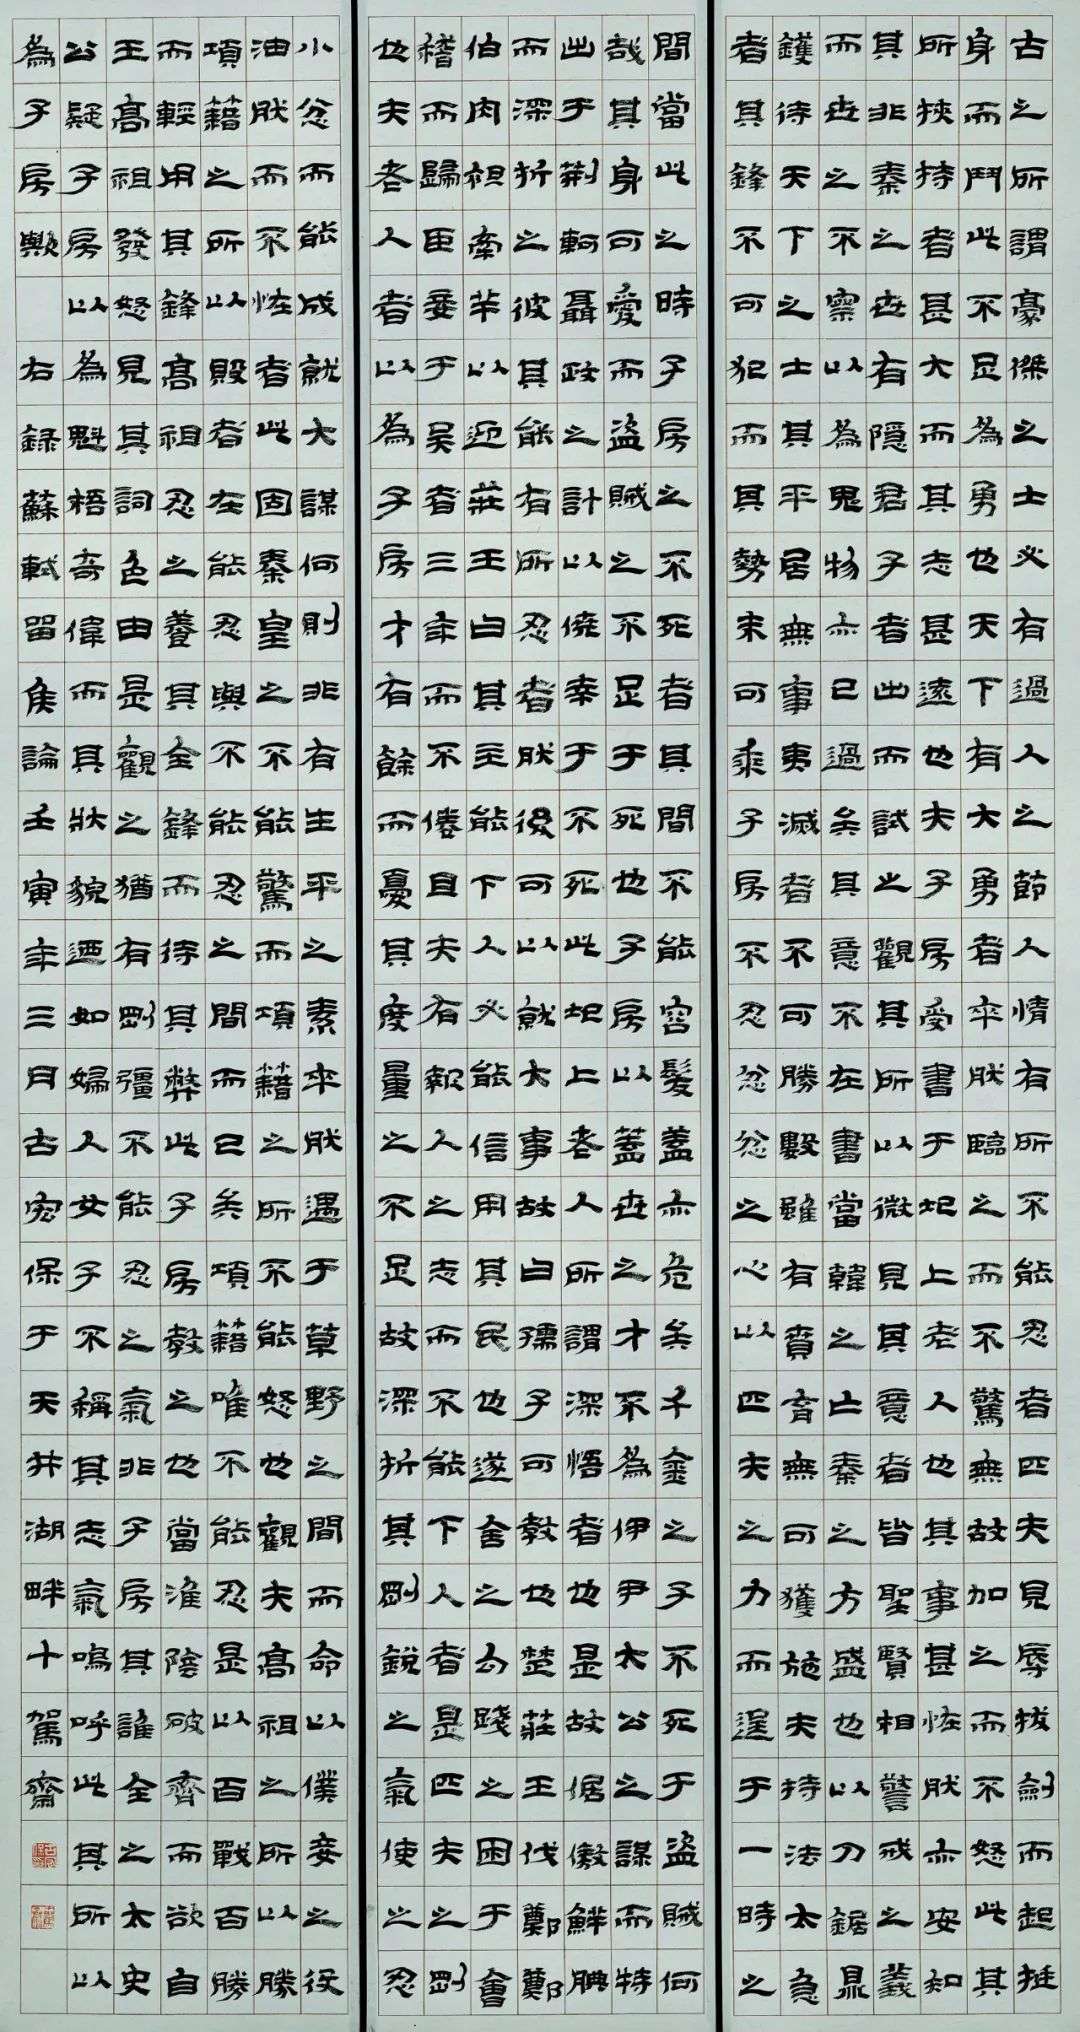 古之所謂豪傑之士必有過人之節人情有所不能忍者匹夫見辱拔劍而起挺
身而鬥此不足為勇也天下有大勇者卒然臨之而不驚無故加之而不怒此其
所挾持者甚大而其志甚遠也夫子房受書于圯上老人也其事甚怪然亦安知
其非秦之世有隱君子者出而試之觀其所以微見其意者皆聖賢相警戒之義
而世之不察以為鬼物亦已過矣其意不在書當韓之亡秦之方盛也以刀鋸鼎
鑊待天下之士其平居無事夷滅者不可勝數雖有賁育無可獲施夫持法太急
者其鋒不可犯而其勢末可乘子房不忍忿忿之心以匹夫之力而逞于一時之
間當此之時子房之不死者其間不能容髮蓋亦危矣千金之子不死于盜賊何
哉其身可愛而盜賊之不足于死也子房以蓋世之才不為伊尹太公之謀而特
出于荊軻聶政之計以僥幸于不死此圯上老人所謂深悟者也是故倨傲鮮腆
而深折之彼其能有所忍者然後可以就大事故曰孺子可教也楚莊王伐鄭鄭
伯肉袒牽羊以迎莊王曰其主能下人必能信用其民也遂舍之勾踐之困于會
稽而歸臣妾于吳者三年而不倦且夫有報人之志而不能下人者是匹夫之剛
也夫老人者以為子房才有餘而憂其度量之不足故深折其剛銳之氣使之忍
小忿而能成就大謀何則非有生平之素卒然遇于草野之間而命以僕妾之役
油然而不怪者此固秦皇之不能驚而項籍之所不能怒也觀夫高祖之所以勝
項籍之所以敗者在能忍與不能忍之間而已矣項籍唯不能忍是以百戰百勝
而輕用其鋒高祖忍之養其全鋒而待其弊此子房教之也當淮陰破齊而欲自
王高祖發怒見其詞色由是觀之猶有剛彊不能忍之氣非子房其誰全之太史
公疑子房以為魁梧奇偉而其狀貌迺如婦人女子不稱其志氣嗚呼此其所以
為子房歟 右錄蘇軾留侯論壬寅年三月古宏保于天井湖畔十駕齋